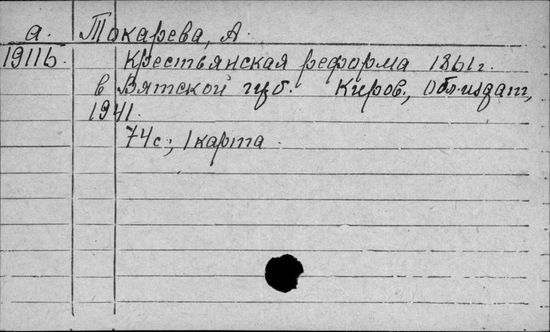 а. Токарева, А.
1911б. Крестьянская реформа 1861г.
в Вятской губ. Киров, Облиздат,
1941.
74с.; 1 карта.